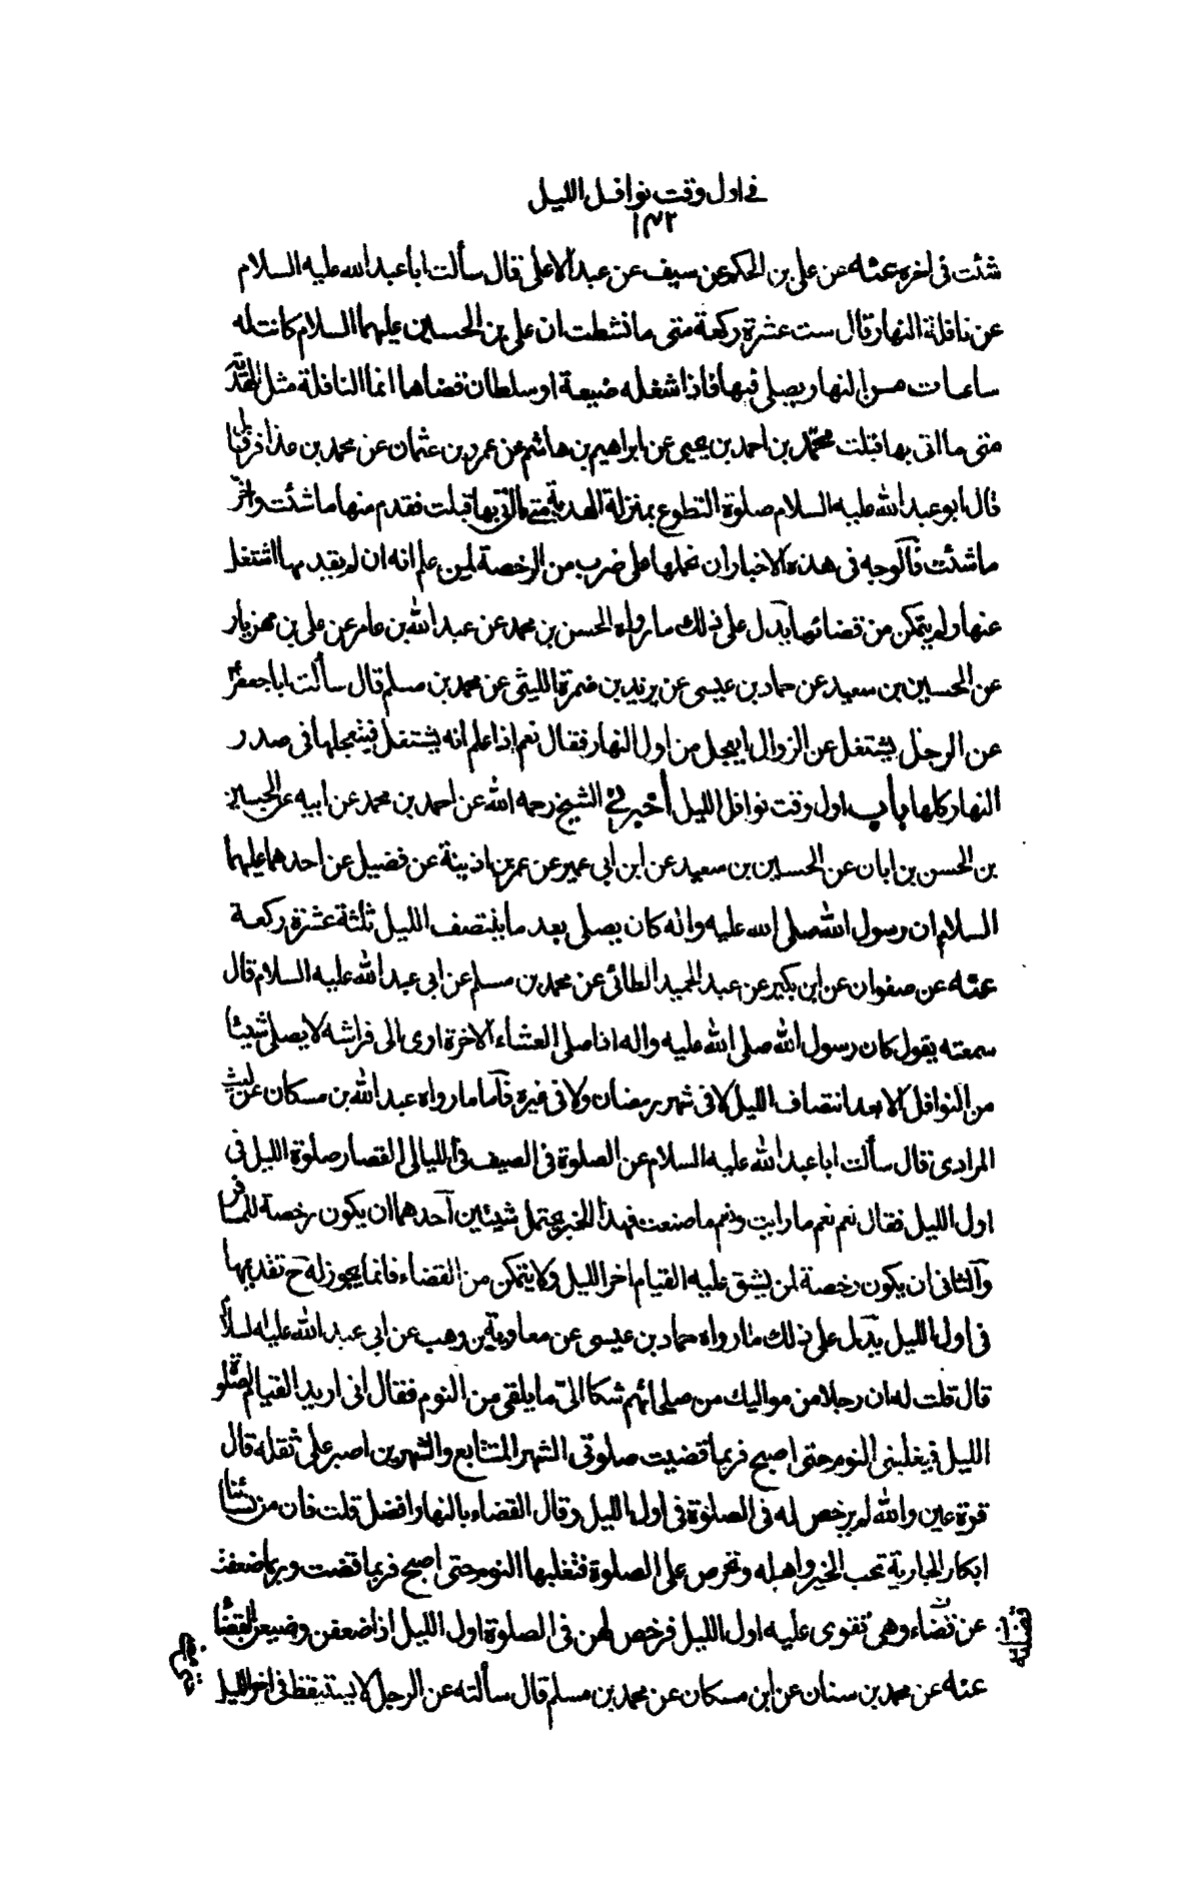 في اول وقت نوافل الليل
١٤٢
شئت في اخره عنه عن علي بن الحكم عن سيف عن عبد الاعلى قال سألت ابا عبد الله عليه السلام
عن نافلة النهار قال ست عشرة ركعة متى ما نشطت ان علي بن الحسين عليهما السلام كانت له
ساعات من النهار يصلي فيها فاذا شغله ضيعة او سلطان قضاها انما النافلة مثل الهدية
متى ما اتى بها قبلت محمد بن احمد بن يحيى عن ابراهيم بن هاشم عن عمرو بن عثمان عن محمد بن عذافر قال
قال ابو عبد الله عليه السلام صلوة التطوع بمنزلة الهدية متى ما اتى بها قبلت فقدم منها ما شئت واخر
ما شئت فالوجه في هذه الاخبار ان نحملها على ضرب من الرخصة لمن علم انه ان لم يقدمها اشتغل
عنها ولم يتمكن من قضائها يدل على ذلك ما رواه الحسن بن محمد عن عبد الله بن عامر عن علي بن مهزيار
عن الحسين بن سعيد عن حماد بن عيسى عن يزيد بن ضمرة الليثي عن محمد بن مسلم قال سألت ابا جعفر ع
عن الرجل يشتغل عن الزوال ايعجل من اول النهار فقال نعم اذا علم انه يشتغل فيتعجلها في صدر
النهار كلها باب اول وقت نوافل الليل أخبرني الشيخ رحمه الله عن احمد بن محمد عن ابيه عن الحسين
بن الحسن بن ابان عن الحسين بن سعيد عن ابن ابي عمير عن عمر بن اذينة عن فضيل عن احدهما عليهما
السلام ان رسول الله صلى الله عليه واله كان يصلي بعد ما ينتصف الليل ثلثة عشرة ركعة
عنه عن صفوان عن ابن بكير عن عبد الحميد الطائي عن محمد بن مسلم عن ابي عبد الله عليه السلام قال
سمعته يقول كان رسول الله صلى الله عليه واله اذا صلى العشاء الاخرة اوى الى فراشه لا يصلي شيئا
من النوافل الا بعد انتصاف الليل لا في شهر رمضان ولا في غيره فآما ما رواه عبد الله بن مسكان عن ليث
المرادي قال سألت ابا عبد الله عليه السلام عن الصلوة في الصيف في الليالي القصار صلوة الليل في
اول الليل فقال نعم نعم ما رايت ونعم ما صنعت فهذا الخبر يحتمل شيئين آحدهما ان يكون رخصة للمسافر
وآلثاني ان يكون رخصة لمن يشق عليه القيام اخر الليل ولا يتمكن من القضاء فانما يجوز له ح تقديمها
في اول الليل يدل على ذلك ما رواه حماد بن عيسى عن معاوية بن وهب عن ابي عبد الله عليه السلام
قال قلت له ان رجلا من مواليك من صلحائهم شكا الي ما يلقى من النوم فقال اني اريد القيام لصلوة
الليل فيغلبني النوم حتى اصبح فربما قضيت صلوتي الشهر المتتابع والشهرين اصبر على ثقله قال
قرة عين والله لم يرخص له في الصلوة في اول الليل وقال القضاء بالنهار افضل قلت فان من نسائنا
ابكار الجارية تحب الخير واهله وتحرص على الصلوة فتغلبها النوم حتى اصبح فربما قضت وربما ضعفت
عن قضاءه وهي تقوى عليه اول الليل فرخص لهن في الصلوة اول الليل اذا ضعفن وضيعن القضاء
عنه عن محمد بن سنان عن ابن مسكان عن محمد بن مسلم قال سألته عن الرجل لا يستيقظ في اخر الليل